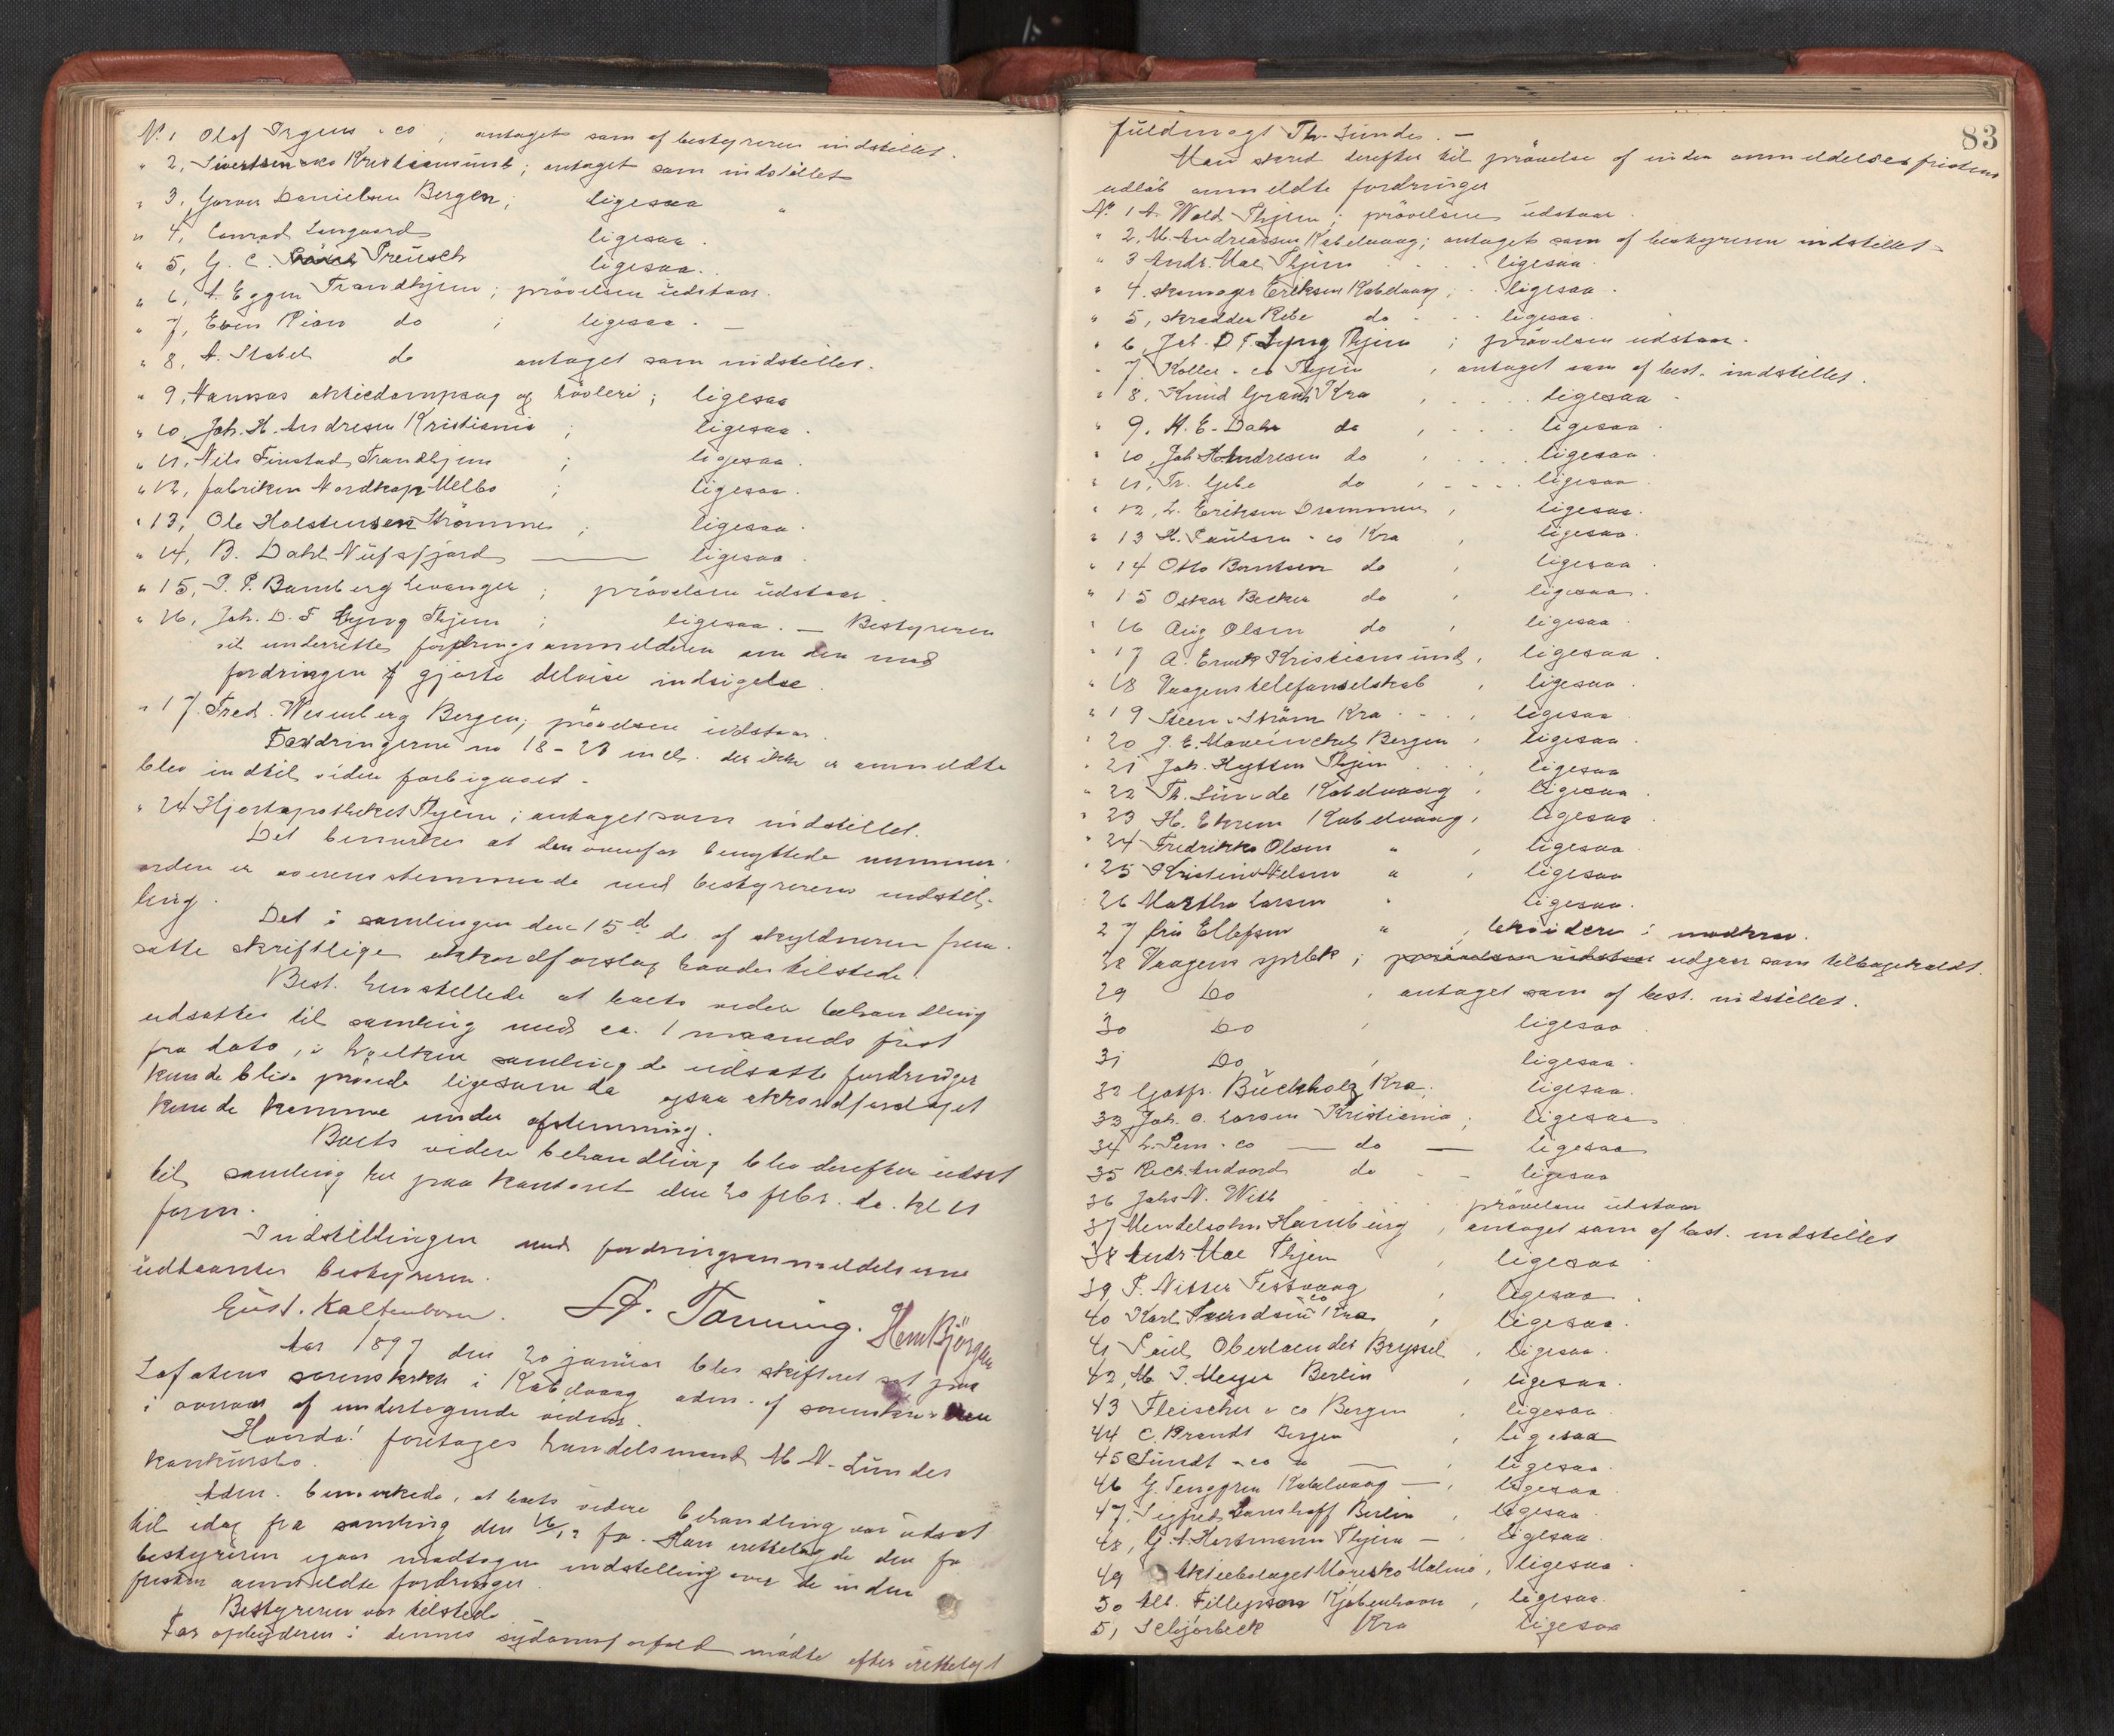 No. 1 Olaf Irgens & co; antaget som af bestyreren indstillet.
" 2, Sivertsen & co Kristiansund; antaget som indstillet
" 3, Gorver Danielsen Bergen; ligesaa "
" 4, Conrad Langaard ligesaa.
" 5, G. C. Preüsch ligesaa.
" 6, A. Eggen Trondhjem; prövelsen üdstaar.
" 7, Even Rian do ; ligesaa. —
" 8, A. Stabel do antaget som indstillet.
" 9, Namsos aktiedampsag og hövleri; ligesaa
" 10, Joh. H. Andresen Kristiania ; ligesaa.
" 11, Nils Finstad Trondhjem ; ligesaa.
" 12, fabriken Nordkap Melbo ; ligesaa.
" 13, Ole Holstensen Strömmen ; ligesaa.
" 14, B. Dahl Nüfsfjord — ligesaa.
" 15, P. P. Bamberg Levanger ; prövelsen üdstaar.
" 16, Joh. D. F. Lyng Thjem ; ligesaa. — Bestyreren
vil underrette fordringsanmelderen om den mod
fordringen gjorte delvise indsigelse.
" 17. Fred. Wesenberg Bergen; prövelsen üdstaar.
Fordringerne no 18-23 incl. der ikke er anmeldte
blev indtil videre forbigaaet.
" 24 Hjorteapotheket Thjem; antaget som indstillet.
Det bemerkes at den ovenfor benyttede nummer-
orden er overensstemmende med bestyrerens indstil-
ling.
Det i samlingen den 15de ds. af skyldneren frem-
satte skriftlige akkordforslag havdes tilstede.
Best. henstillede at boets videre behandling
udsattes til samling med ca. 1 maaneds frist
fra dato, i hvilken samling de üdsatte fordringer
kunde blive prövede ligesom da ogsaa akkordforslaget
kunde komme under afstemning.
Boets videre behandling blev derefter üdsat
til samling her paa kontoret den 20 febr. d.a. kl 11
form.
Indstillingen med fordringsanmeldelserne
üdlaantes bestyreren.
Güst. Kaltenborn. Fr. Tanning. Herm Björgan
Aar 1897 den 20 januar blev skifteret sat paa
Lofotens sorenskrkt i Kabelvaag adm. af sorenskriveren
i overvær af undertegnede vidner.
Hvorda! foretoges handelsmand M. N. Sundes
konkürsbo.
Adm. bemerkede, at boets videre behandling var üdsat
til idag fra samling den 16/12 f.a. Han irettelagde den fra
bestyreren igaar modtagne indstilling over de inden
fristen anmeldte fordringer.
Bestyreren var tilstede
For opbyderen i dennes sygdomsforfald mödte efter irettelagt
83
füldmagt Th. Sunde. —
Man skred derefter til prövelse af inden anmeldelsesfristens
udlöb anmeldte fordringer
No. 1 A. Wold Thjem; prövelsen üdstaar.
" 2, M. Andreassen Kabelvaag; antaget som af bestyreren indstillet.
" 3 Andr. Moe Thjem . . . ligesaa.
" 4. skomager Eriksen Kabelvaag; . ligesaa.
" 5, skrædder Rebe do . . ligesaa.
" 6 Joh. D. F. Lyng Thjem ; prövelsen udstaar.
" 7 Koller & co Thjem , antaget som af best. indstillet.
" 8. Knud Graah Kra , . . . . ligesaa.
" 9. H. E. Dahr do , . . . ligesaa.
" 10, Joh H Andresen do , . . . . ligesaa.
" 11, Tr. Gebe do , . . . . ligesaa.
" 12, L. Eriksen Drammen , ligesaa.
" 13 H. Paülsen & co Kra , ligesaa.
" 14 Otto Berntsen do , ligesaa.
" 15 Oskar Becker do , ligesaa.
" 16 Aug Olsen do , ligesaa.
" 17 A. Ernst Kristiansund, ligesaa.
" 18 Vaagens telefonselskab , ligesaa.
" 19 Steen & Ström Kra . . , ligesaa
" 20 J. E. Mowinckel Bergen , ligesaa.
" 21 Joh. Hyssen Thjem . . , ligesaa
" 22 Th. Sünde Kabelvaag , ligesaa.
" 23 H. Ekrem Kabelvaag, ligesaa.
" 24 Fredrikke Olsen " , ligesaa
" 25 Kristine Nelsen " , ligesaa
26 Martha Larsen " ligesaa.
27 frü Ellefsen " ,
28 Vaagens sprbk; prövelsen üdstaar udgaar som tilbagekaldt.
29 Do , antaget som af best. indstillet.
30 Do , ligesaa
31 Do , ligesaa.
32 Gotfr. Büchholz Kra. ligesaa.
33 Joh. O. Larsen Kristiania ; ligesaa
34 L. Pem & co — do — ligesaa
35 Rich. Andvord do - - ligesaa
36 Johs N. With . . prövelsen üdstaar
37 Mendelsohn Hambürg , antaget som af best. indstillet
38 Andr. Moe Thjem , ligesaa.
39 P. Nisser Festvaag , ligesaa.
40 Karl & co Kra , ligesaa.
41 Paül Oberlaender Bryssel , ligesaa.
42, M. J. Meyer Berlin , ligesaa.
43 Fleischer & co Bergen , ligesaa.
44 C. Brandt Bergen , ligesaa
45 Sündt & co " — , ligesaa.
46 G. Tenggren Kabelvaag — , ligesaa
47, Sigfred Lamhoff Berlin , ligesaa.
48, G. A. Hartmann Thjem — , ligesaa.
49 Aktiebolaget Moresko Malmö, ligesaa.
50 Alb. Fillipson Kjöbenhavn , ligesaa.
51 Schjörbeck Kra ligesaa